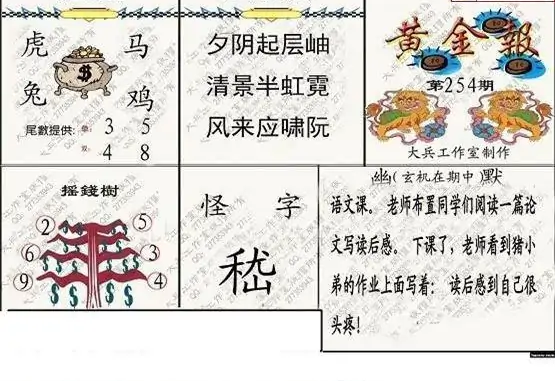 虎 马
兔 鸡
尾數提供: 单: 3 5
双: 4 8
夕阴起层岫
清景半虹霓
风来应啸阮
黄金報
第254期
大兵工作室制作
摇錢樹
2 5
6 3
9 4
怪 字
嵇
幽(玄机在期中)默
语文课。 老师布置同学们阅读一篇论
文写读后感。 下课了，老师看到猪小
弟的作业上面写着： 读后感到自己很
头疼！